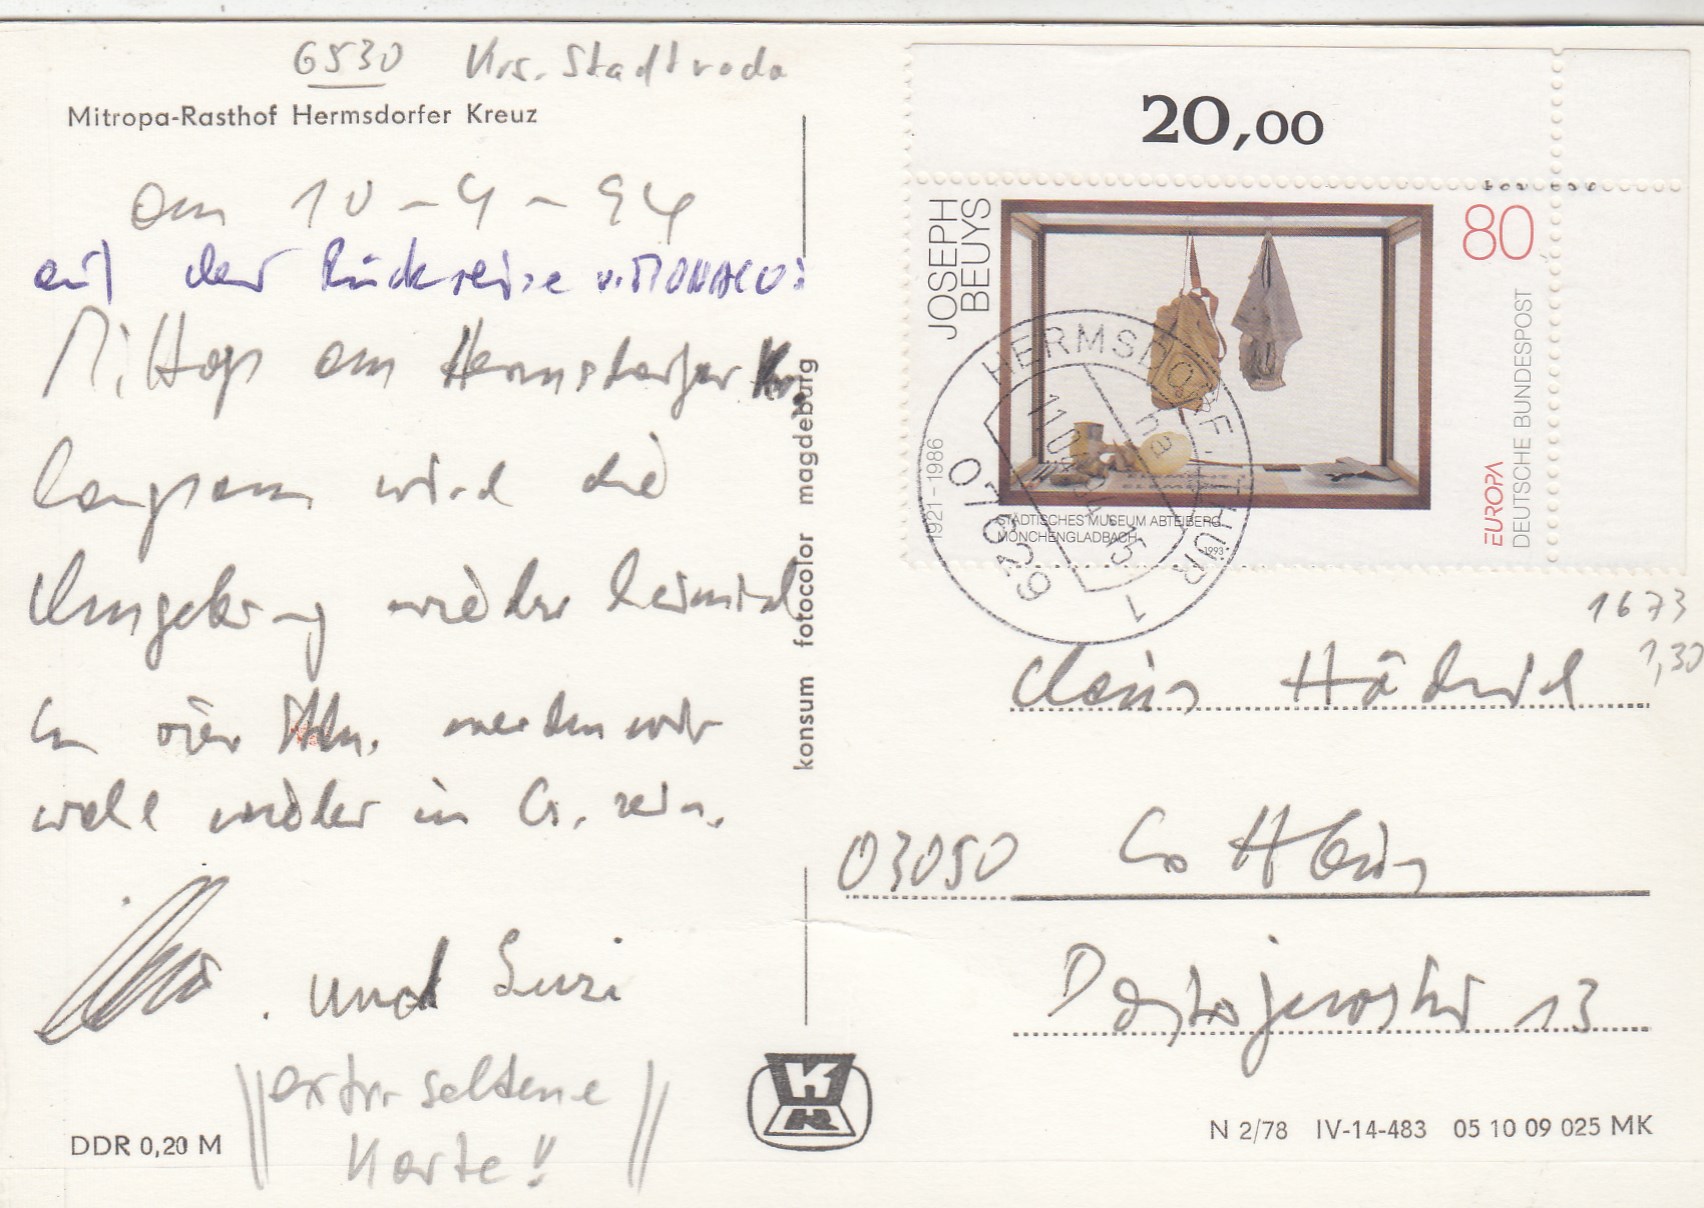 6530 Krs. Stadtroda
Mitropa-Rasthof Hermsdorfer Kreuz
am 10-4-94
auf der Rückreise v. MONACO:
Mittags am Hermsdorfer Kr.
langsam wird die
Umgebung wieder heimisch
In vier Stdn. werden wir
wohl wieder in C. sein.
und Susi
extra seltene
Karte!!
DDR 0,20 M
konsum fotocolor magdeburg
KM
20,00
JOSEPH
BEUYS
1921–1986
80
EUROPA
DEUTSCHE BUNDESPOST
STÄDTISCHES MUSEUM ABTEIBERG
MÖNCHENGLADBACH
1993
HERMSDORF, THÜR 1
07629
1673
1,30
03050 Cottbus
Dostojewski 13
N 2/78 IV-14-483 05 10 09 025 MK